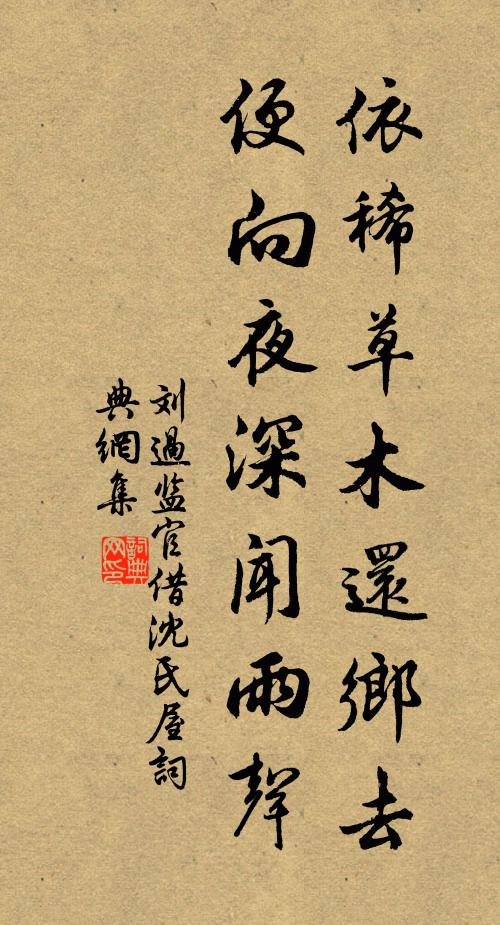 依稀草木還鄉去
便向夜深聞雨聲
刘過监官借沈氏屋詞
典網集
詞典
网印